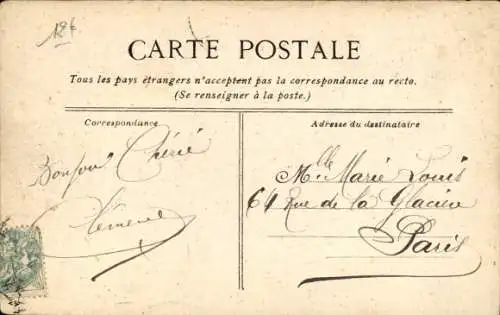 126
CARTE POSTALE
Tous les pays étrangers n'acceptent pas la correspondance au recto.
(Se renseigner à la poste.)
Correspondance
Adresse du destinataire
Bonjour Chérie
Clémence
Mlle Marie Louis
64 Rue de la Glacière
Paris